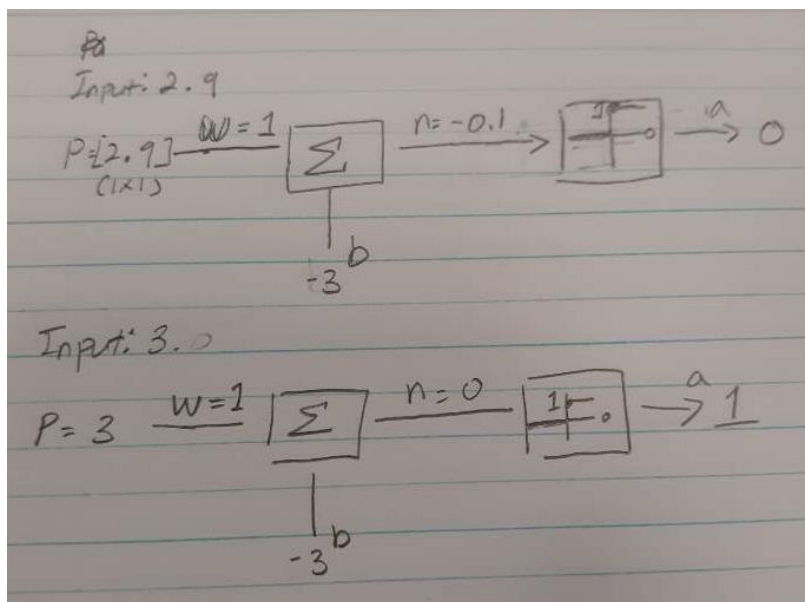 Input: 2.9
P=[2.9] w=1 Σ n=-0.1 1 a 0
(1x1)
b
-3
Input: 3.0
P=3 w=1 Σ n=0 1 a 1
b
-3